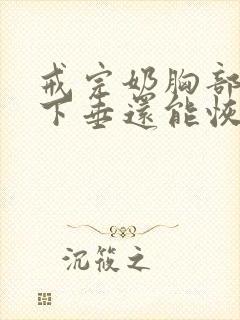 戒完奶胸部
下垂還能恢
沉筱之